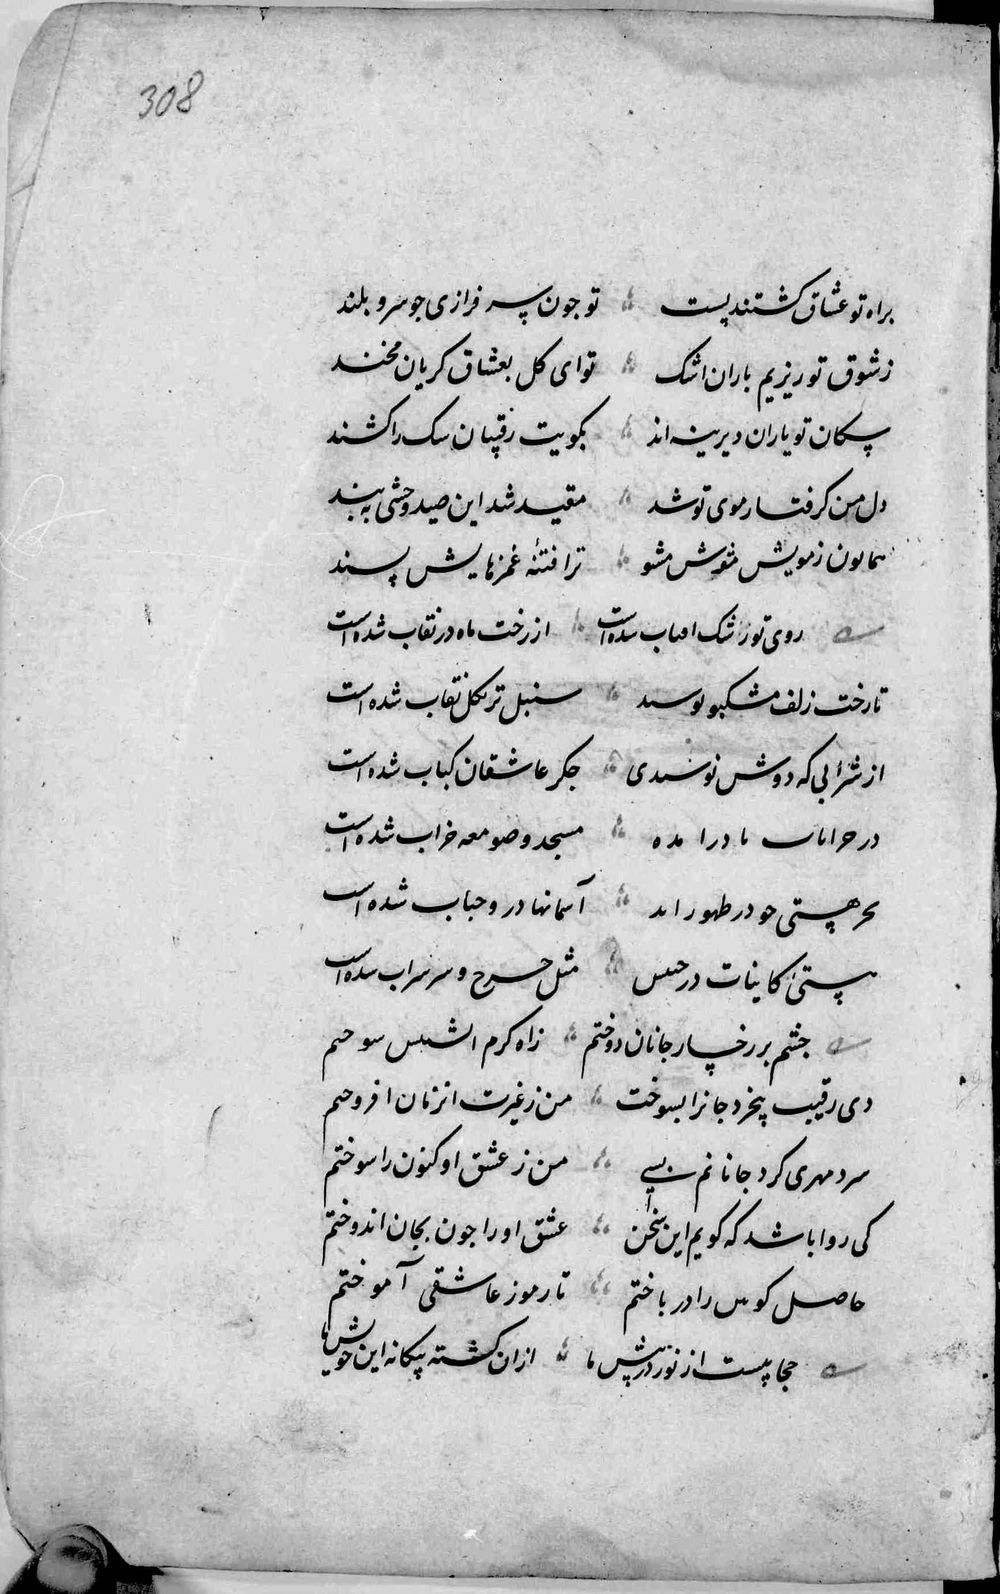 308
براه تو عشاق کشتند پست تو جون سرفرازی جو سرو بلند
ز شوق تو ریزیم باران اشک تو ای کل بعشاق کریان مخند
سکان تو یاران دیرینه اند بکویت رقیبان سک را کشند
دل من کرفتار موی تو شد مقید شد این صید وحشی به بند
همایون ز مویش مشوش مشو ترا فتنهٔ غمزهایش پسند
روی تو رشک افتاب شده است از رخت ماه در نقاب شده است
تا رخت زلف مشکبو پوشید سنبل تر بکل نقاب شده است
از شرابی که دوش نوشیدی جکر عاشقان کباب شده است
در خرابات تا درامده مسجد و صومعه خراب شده است
بحر هستی جو در ظهور امد آسمانها درو حباب شده است
هستئ کاینات در جنبش مثل جرح و سراب شده است
جشم بر رخسار جانان دوختم زاه کرم اتشین سوختم
دی رقیب بیخرد جانرا بسوخت من ز غیرت انزمان افروختم
سرد مهری کرد جانانم بسی من ز عشق او کنون را سوختم
کی روا باشد که کویم این سخن عشق او را جون بجان اندوختم
حاصل کونین را در باختم تا رموز عاشقی آموختم
حجابیست از نور در پیش ما ازان کشته بیکانه این خویش ما